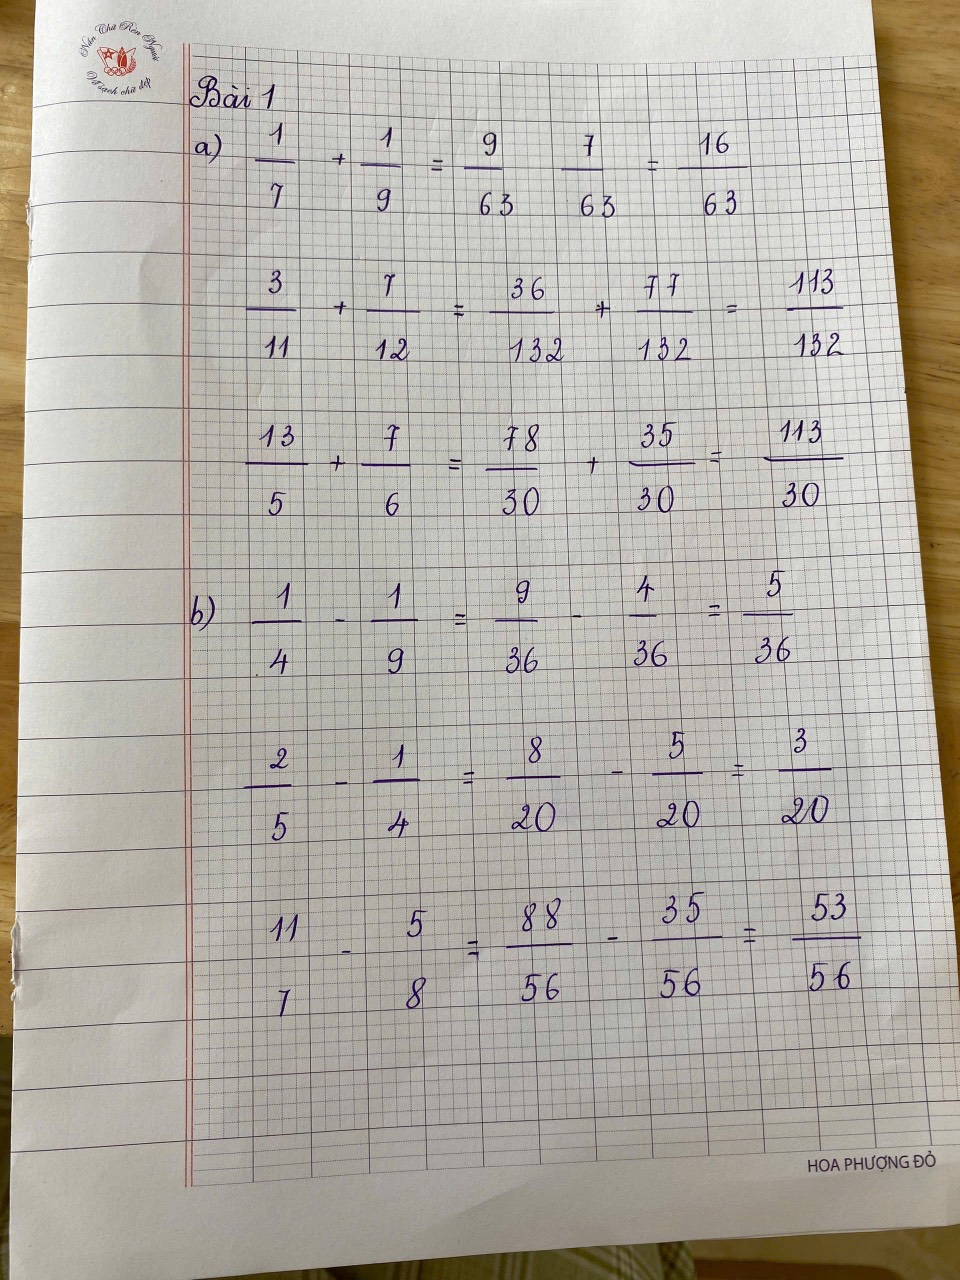 Nắn Chữ Rèn Người
Vở sạch chữ đẹp
Bài 1
a) 1/7 + 1/9 = 9/63 7/63 = 16/63
3/11 + 7/12 = 36/132 + 77/132 = 113/132
13/5 + 7/6 = 78/30 + 35/30 = 113/30
b) 1/4 - 1/9 = 9/36 - 4/36 = 5/36
2/5 - 1/4 = 8/20 - 5/20 = 3/20
11/7 - 5/8 = 88/56 - 35/56 = 53/56
HOA PHƯỢNG ĐỎ